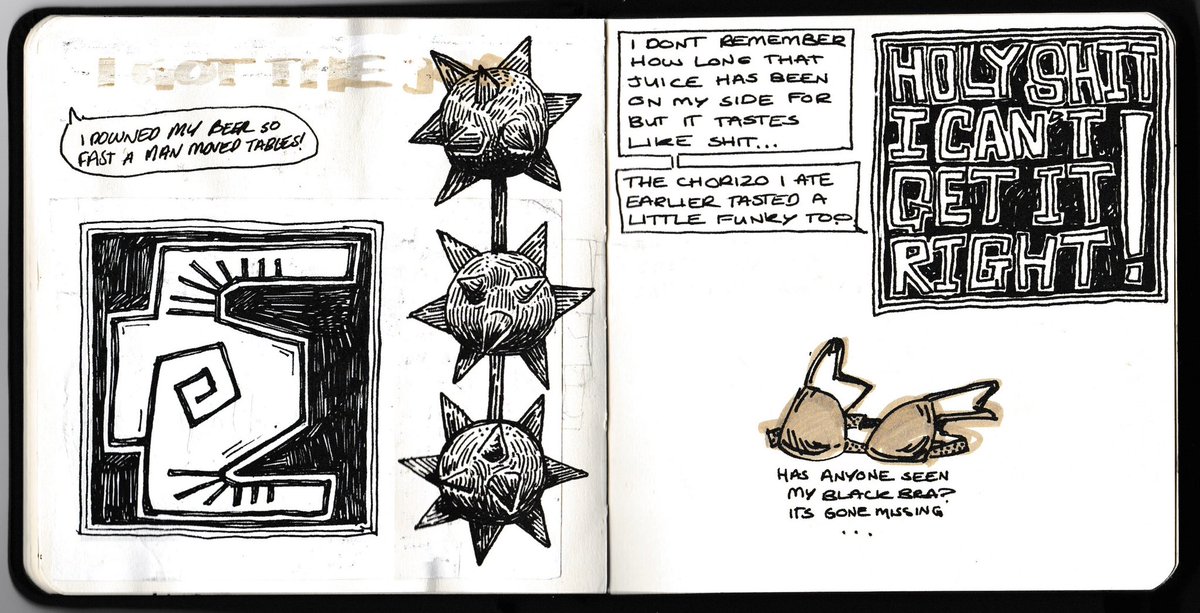 I GOT THE
I DOWNED MY BEER SO
FAST A MAN MOVED TABLES!
I DONT REMEMBER
HOW LONG THAT
JUICE HAS BEEN
ON MY SIDE FOR
BUT IT TASTES
LIKE SHIT...
THE CHORIZO I ATE
EARLIER TASTED A
LITTLE FUNKY TOO
HOLY SHIT
I CAN'T
GET IT
RIGHT!
HAS ANYONE SEEN
MY BLACK BRA?
ITS GONE MISSING
...